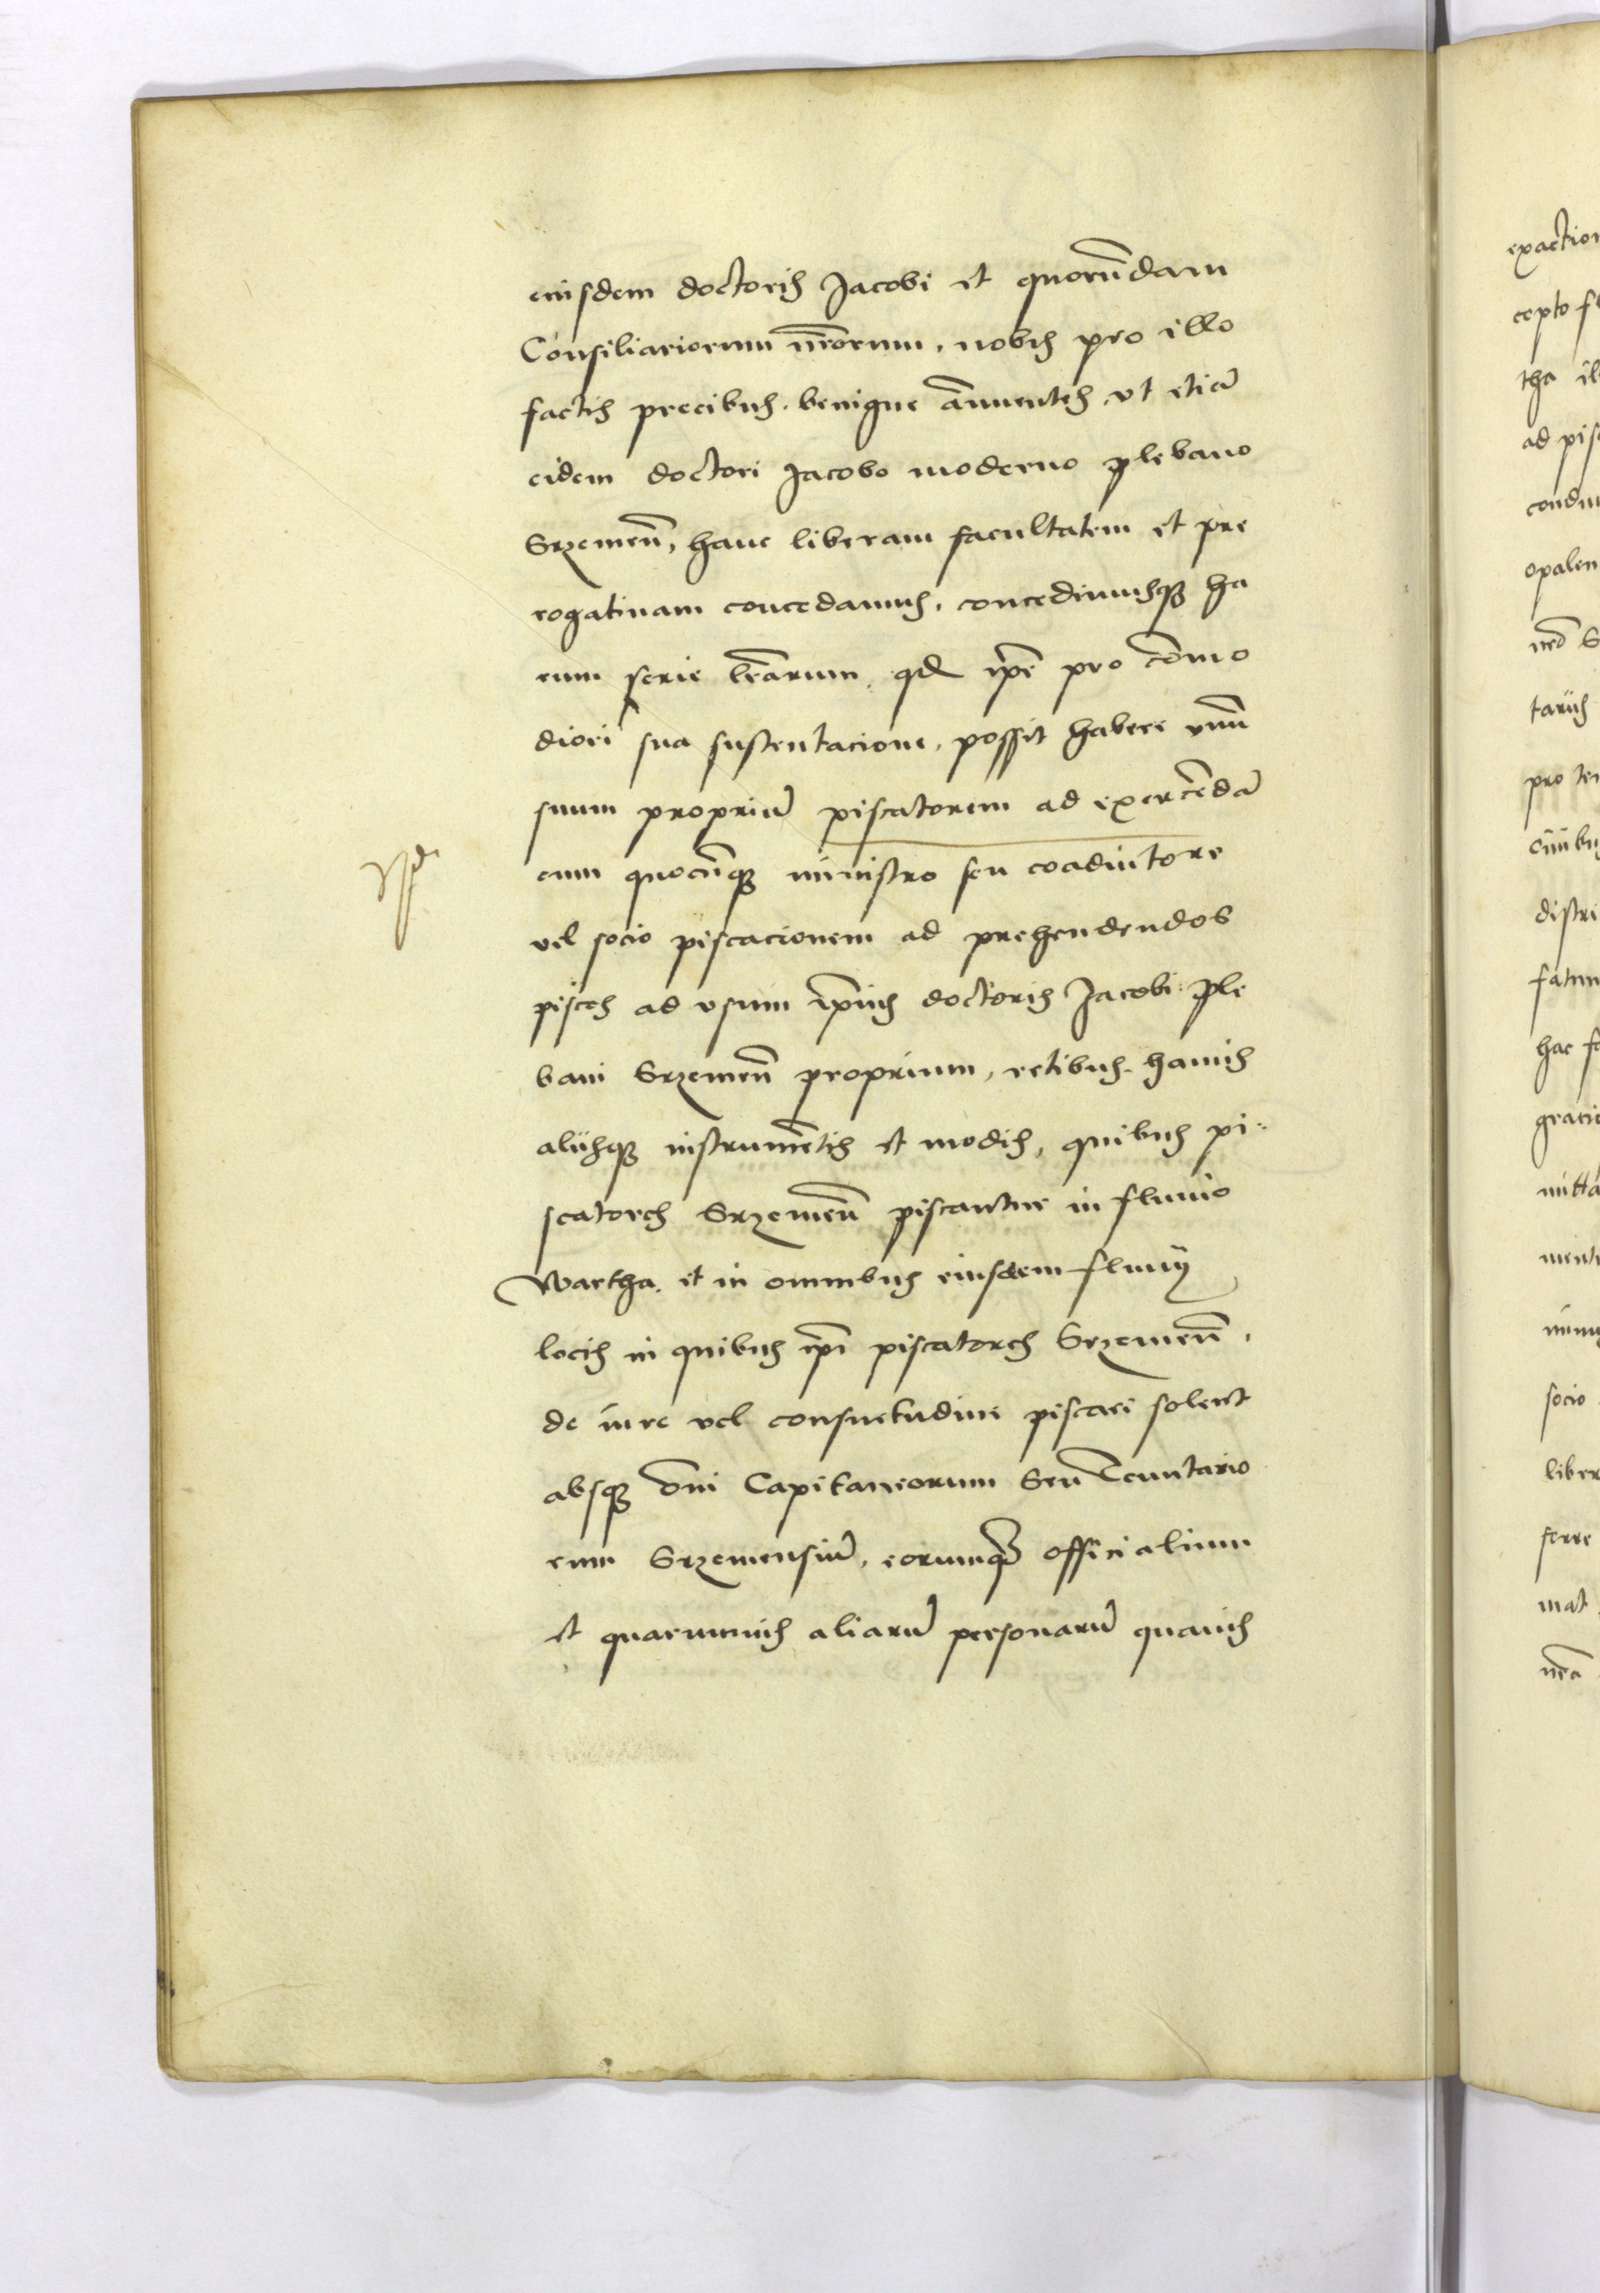 eiusdem doctoris Jacobi et quorũdam
Consiliariorum nr̃orum, nobis pro illo
factis precibus. benigne ãnuentes vt etiã
eidem doctori Jacobo moderno plebano
Srzemeñ, hanc liberam facultatem et pre
rogatiuam concedamus, concedimusq̃ ha
rum serie lr̃arum, qđ ip̃e pro cõmo
diori sua sustentacione, possit habere vnũ
suum propriũ piscatorem ad exercẽdã
cum quocũq̃ ministro seu coadiutore
vel socio piscacionem ad prehendendos
pisces ad vsum ip̃ius doctoris Jacobi ple
bani Srzemeñ proprium, retibus hamis
alijsq̃ instrumẽtis et modis, quibus pi-
scatores Srzemeñ piscantur in fluuio
Wartha. et in omnibus eiusdem fluuij
locis in quibus ip̃i piscatores Srzemeñ,
de iure vel consuetudine piscari solent
absq̃ õni Capitaneorum Seu Tenutario
rum Srzemensiũ, eorumq̃ officialium
et quarumuis aliarũ personarũ quauis
exaction
cepto
tha
ad pis
opalen
tarijs
pro te
distri
fatum
hac
gracio
mitta
socio
liber
ferre
mat
nr̃a